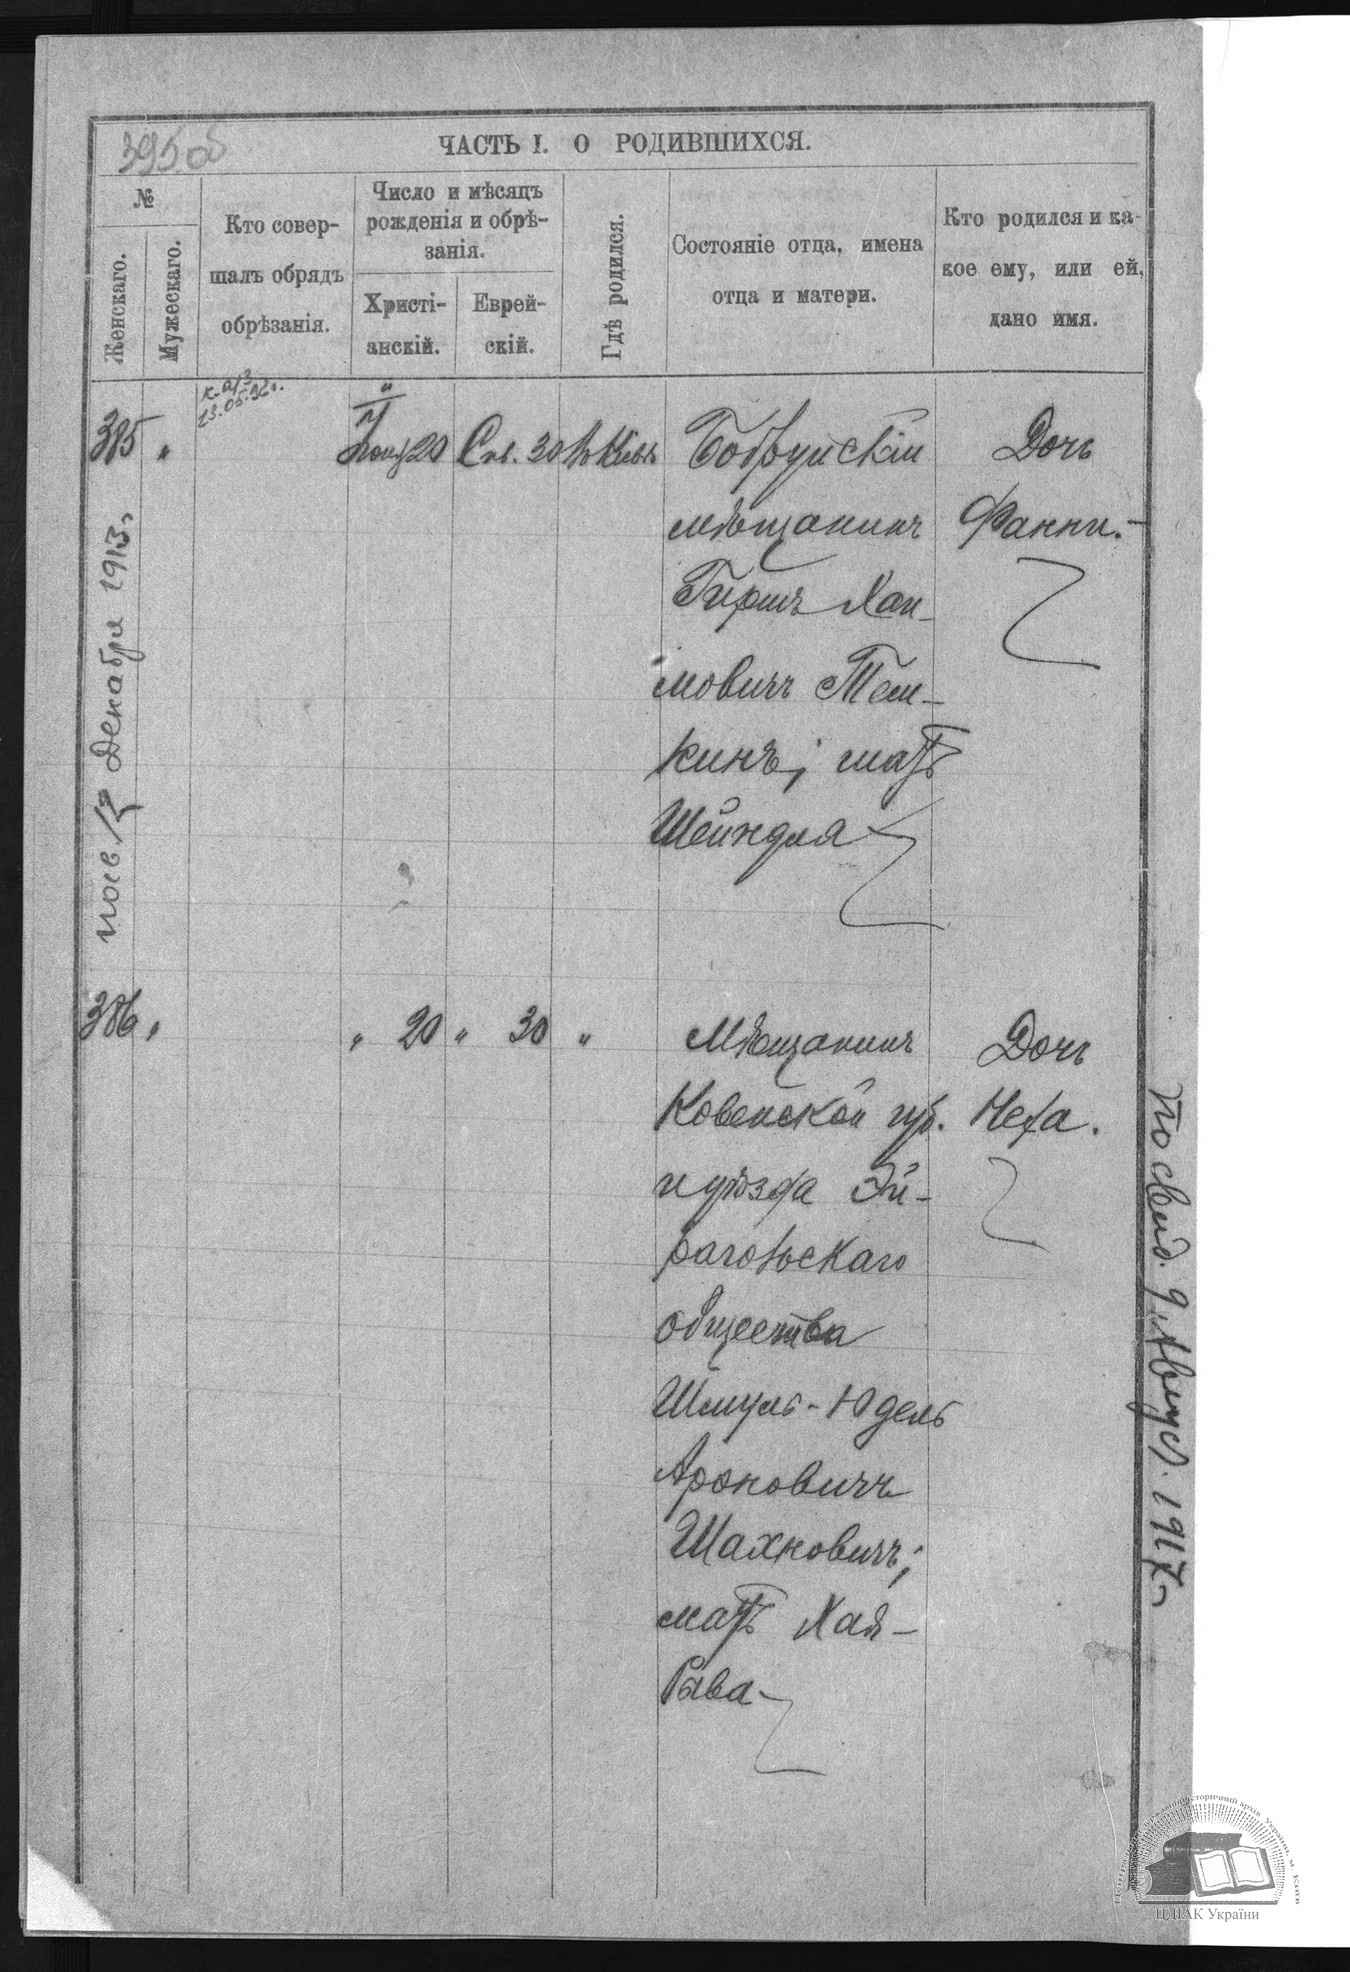 395 об
ЧАСТЬ I. О РОДИВШИХСЯ.
№
Женскаго.
Мужескаго.
Кто совер-
шалъ обрядъ
обрѣзанія.
Число и мѣсяцъ
рожденія и обрѣ-
занія.
Христі-
анскій.
Еврей-
скій.
Гдѣ родился.
Состояніе отца, имена
отца и матери.
Кто родился и ка-
кое ему, или ей,
дано имя.
385 "
20
30
Бобруйскій
мѣщанинъ
Гиршъ Хаи-
мовичъ Тем-
кинъ; мать
Шейндля
Дочь
Фанни.-
Декабря 1913
386 "
" 20 " 30 "
Мѣщанинъ
Ковенской губ.
и уѣзда Эй-
рагольскаго
общества
Шмуль-Юдель
Ароновичъ
Шахновичъ;
мать Хая-
Дочь
Неха.
По свид. 9 Август. 1917 г
ЦДІАК України